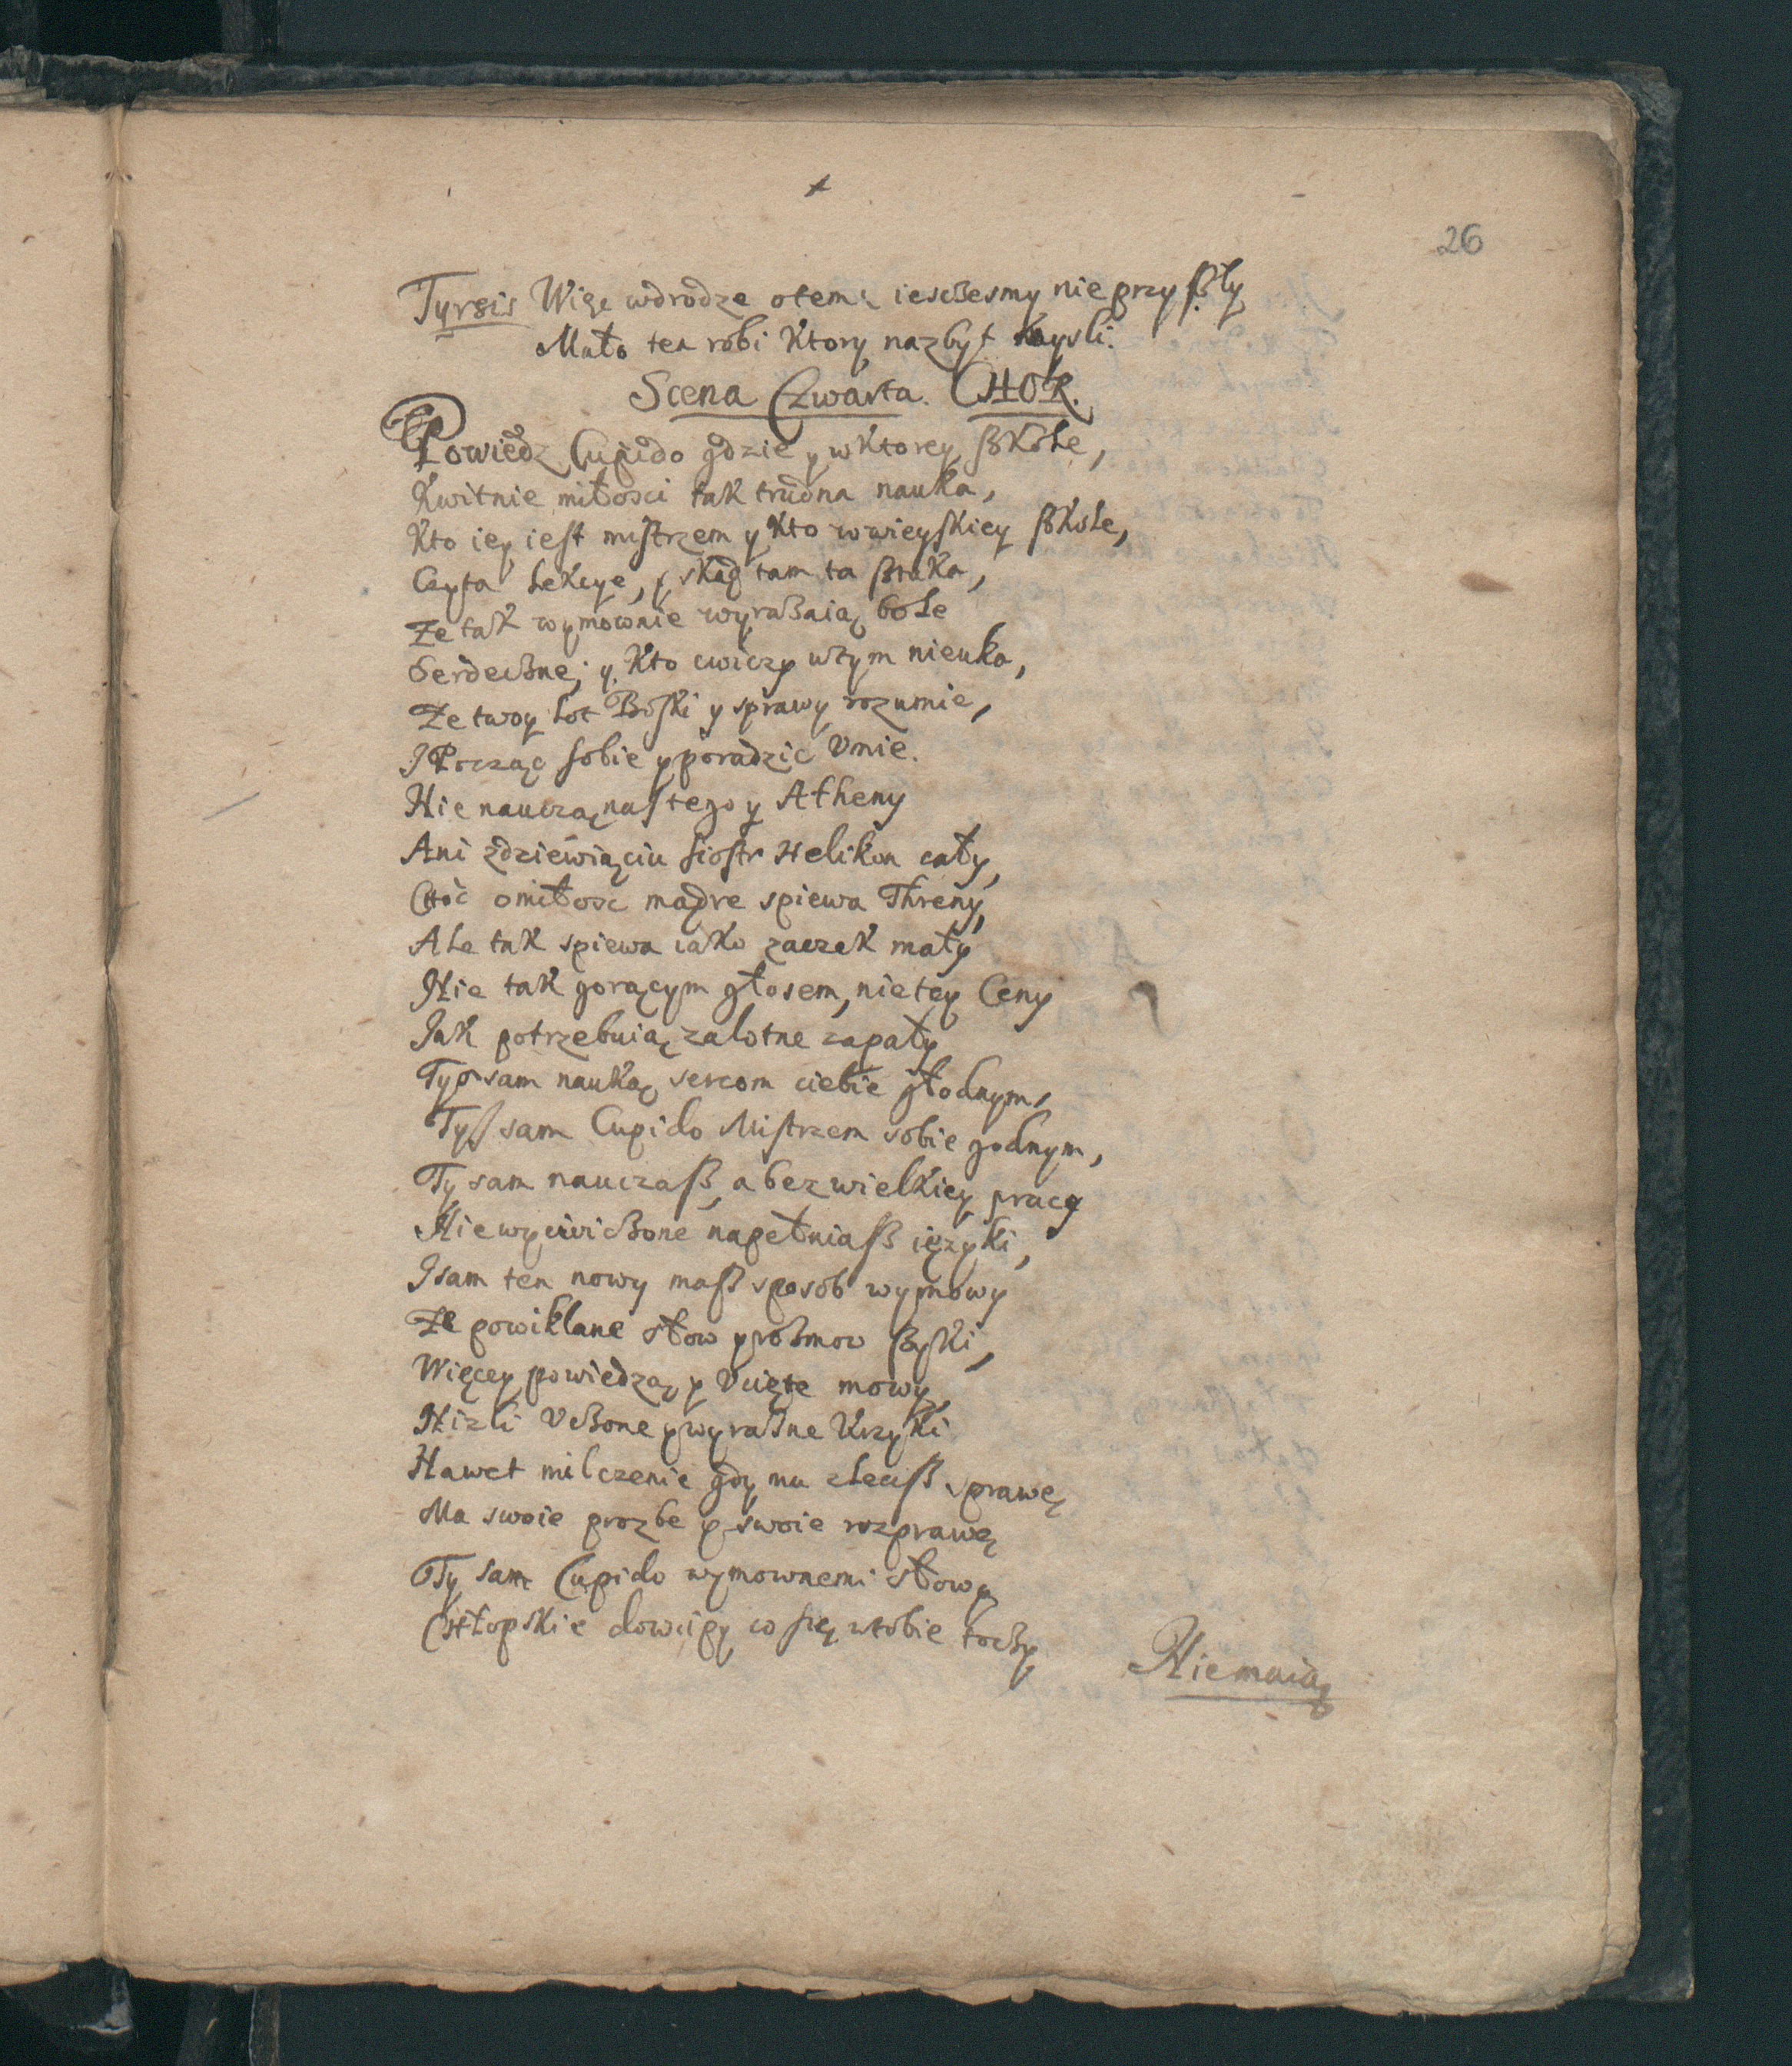 26
Tyrsis Więc wdrodze otem iescßesmy nie przyßly
Mało ten robi Ktory nazbyt mysli.
Scena Czwarta. CHOR.
Powiedz Cupido gdzie y wKtorey ßKole,
Kwitnie miłosci tak trudna nauka,
Kto iey iest mistrzem y Kto wwieyskiey ßKole,
Czyta Lekcye, y skąd tam ta ßtuka,
Ze tak wymownie wyraßaią bole
Serdecßne; y Kto cwiczy wtym nieuka,
Ze twoy Lot Boski y sprawy rozumie,
I Począc sobie y poradzic Vmie.
Nie nauczą nas tego y Atheny
Ani zdziewięciu siostr Helikon cały,
Choc omiłosc mądre spiewa Threny,
Ale tak spiewa iako zaczek mały
Nie tak gorącym głosem, nietey Ceny
Jak potrzebuią zalotne zapały
Tys sam nauką sercom ciebie głodnym,
Tys sam Cupido Mistrzem sobie godnym,
Ty sam nauczaß, a bez wielkiey pracy
Niewycwicßone napełniaß ięzyki,
I sam ten nowy maß sposob wymowy
Ze powiklane słow y roßmow ßyki,
Więcey powiedzą y Vcięte mowy,
Nizli Vcßone y wyraßne Krzyki
Nawet milczenie gdy mu zleciß sprawę
Ma swoie prozbe y swoie rozprawę
Ty sam Cupido wymownemi słowy
Chłopskie dowcipy co się wtobie tocßy
Niemaią